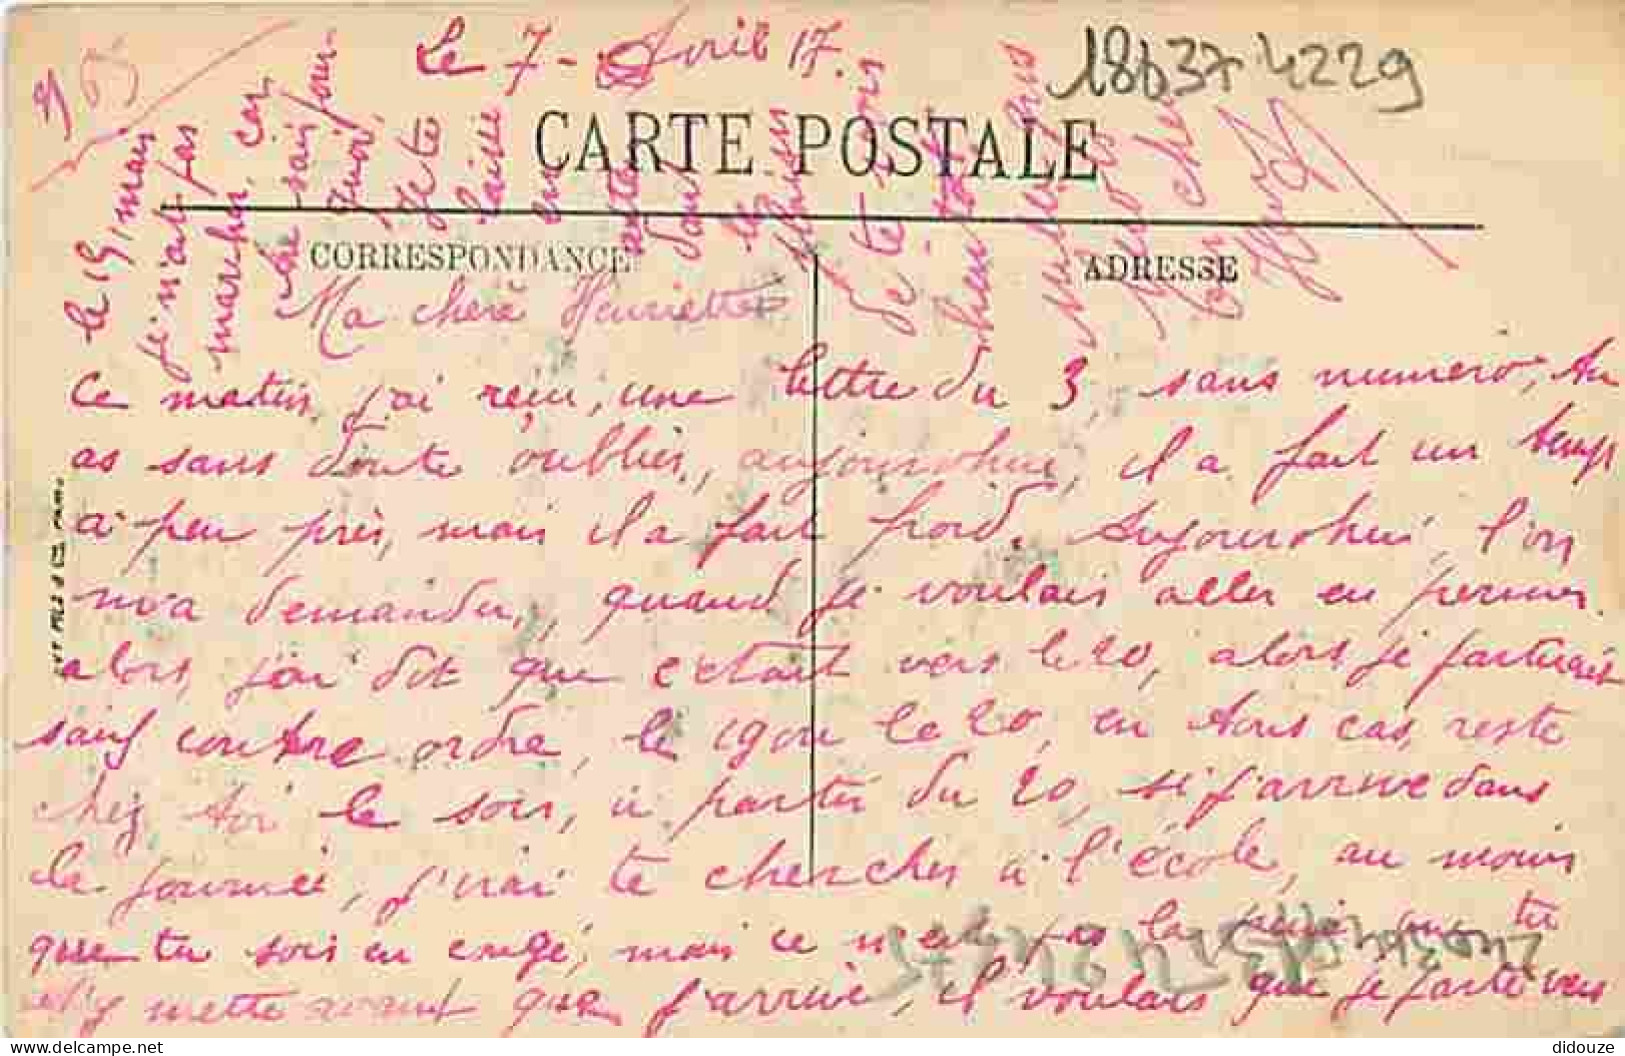 Le 7 - Avril 17.
18637 4229
CARTE POSTALE
CORRESPONDANCE
ADRESSE
Ma chère Henriette
Ce matin, j'ai reçu, une lettre du 3, sans numéro, tu
as sans doute oublier, aujourd'hui, il a fait un temps
à peu près, mais il a fait froid. Aujourd'hui, l'on
m'a demander, quand je voulais aller en permi
alors, j'ai dit que c'etait vers le 20, alors je partirais
sauf contre ordre, le 19 ou le 20, en tous cas, reste
chez toi le soir, à partir du 20, si j'arrive dans
la journée, j'irai te chercher à l'école, au moins
que tu sois en congé, mais ce n'est pas la peine que tu
t'y mette avant que j'arrive, il voulais que je parte vers
le 15, mais
je n'ait pas
marcher, car,
sai pour
quoi,
Je te
laisse
en
dans
le
de te voir
bientôt